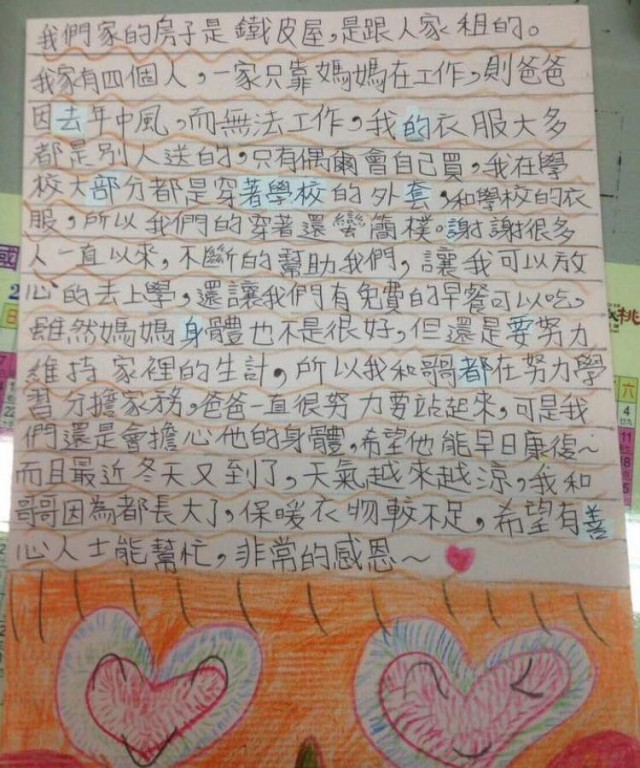 我們家的房子是鐵皮屋,是跟人家租的。
我家有四個人,一家只靠媽媽在工作,則爸爸
因去年中風,而無法工作,我的衣服大多
都是別人送的,只有偶爾會自己買,我在學
校大部分都是穿著學校的外套,和學校的衣
服,所以我們的穿著還蠻簡樸。謝謝很多
人一直以來,不斷的幫助我們,讓我可以放
心的去上學,還讓我們有免費的早餐可以吃,
雖然媽媽身體也不是很好,但還是要努力
維持家裡的生計,所以我和哥哥都在努力學
習分擔家務,爸爸一直很努力要站起來,可是我
們還是會擔心他的身體,希望他能早日康復~
而且最近冬天又到了,天氣越來越涼,我和
哥哥因為都長大了,保暖衣物較不足,希望有善
心人士能幫忙,非常的感恩~
國
2
日
桃
六
4
11
18